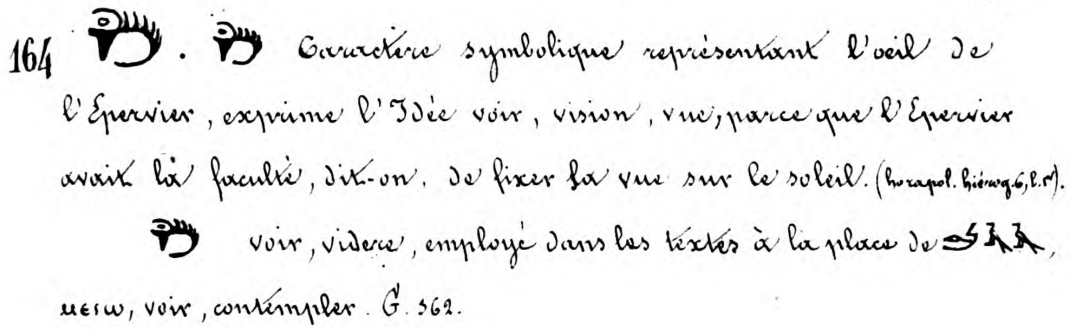 164 . Caractère symbolique représentant l'oeil de
l'Epervier, exprime l'Idée voir, vision, vue, parce que l'Epervier
avait la faculté, dit-on, de fixer sa vue sur le soleil. (horapol. hiérog. 6, l. 1er).
voir, videre, employé dans les textes à la place de ,
ⲙⲉⲓⲱ, voir, contempler. G. 362.